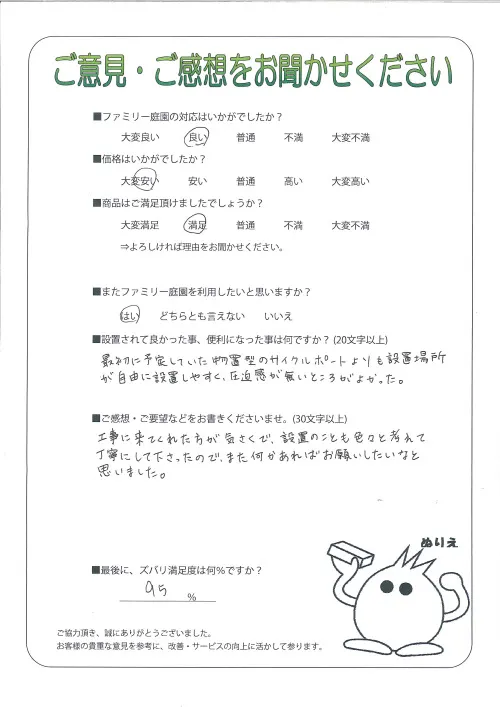 ご意見・ご感想をお聞かせください
■ファミリー庭園の対応はいかがでしたか？
大変良い 良い 普通 不満 大変不満
■価格はいかがでしたか？
大変安い 安い 普通 高い 大変高い
■商品はご満足頂けましたでしょうか？
大変満足 満足 普通 不満 大変不満
⇒よろしければ理由をお聞かせください。
■またファミリー庭園を利用したいと思いますか？
はい どちらとも言えない いいえ
■設置されて良かった事、便利になった事は何ですか？(20文字以上)
最初に予定していた物置型のサイクルポートよりも設置場所
が自由に設置しやすく、圧迫感が無いところがよかった。
■ご感想・ご要望などをお書きくださいませ。(30文字以上)
工事に来てくれた方が気さくで、設置のことも色々と考えて
丁寧にして下さったので、また何かあればお願いしたいなと
思いました。
ぬりえ
■最後に、ズバリ満足度は何％ですか？
95 %
ご協力頂き、誠にありがとうございました。
お客様の貴重な意見を参考に、改善・サービスの向上に活かして参ります。